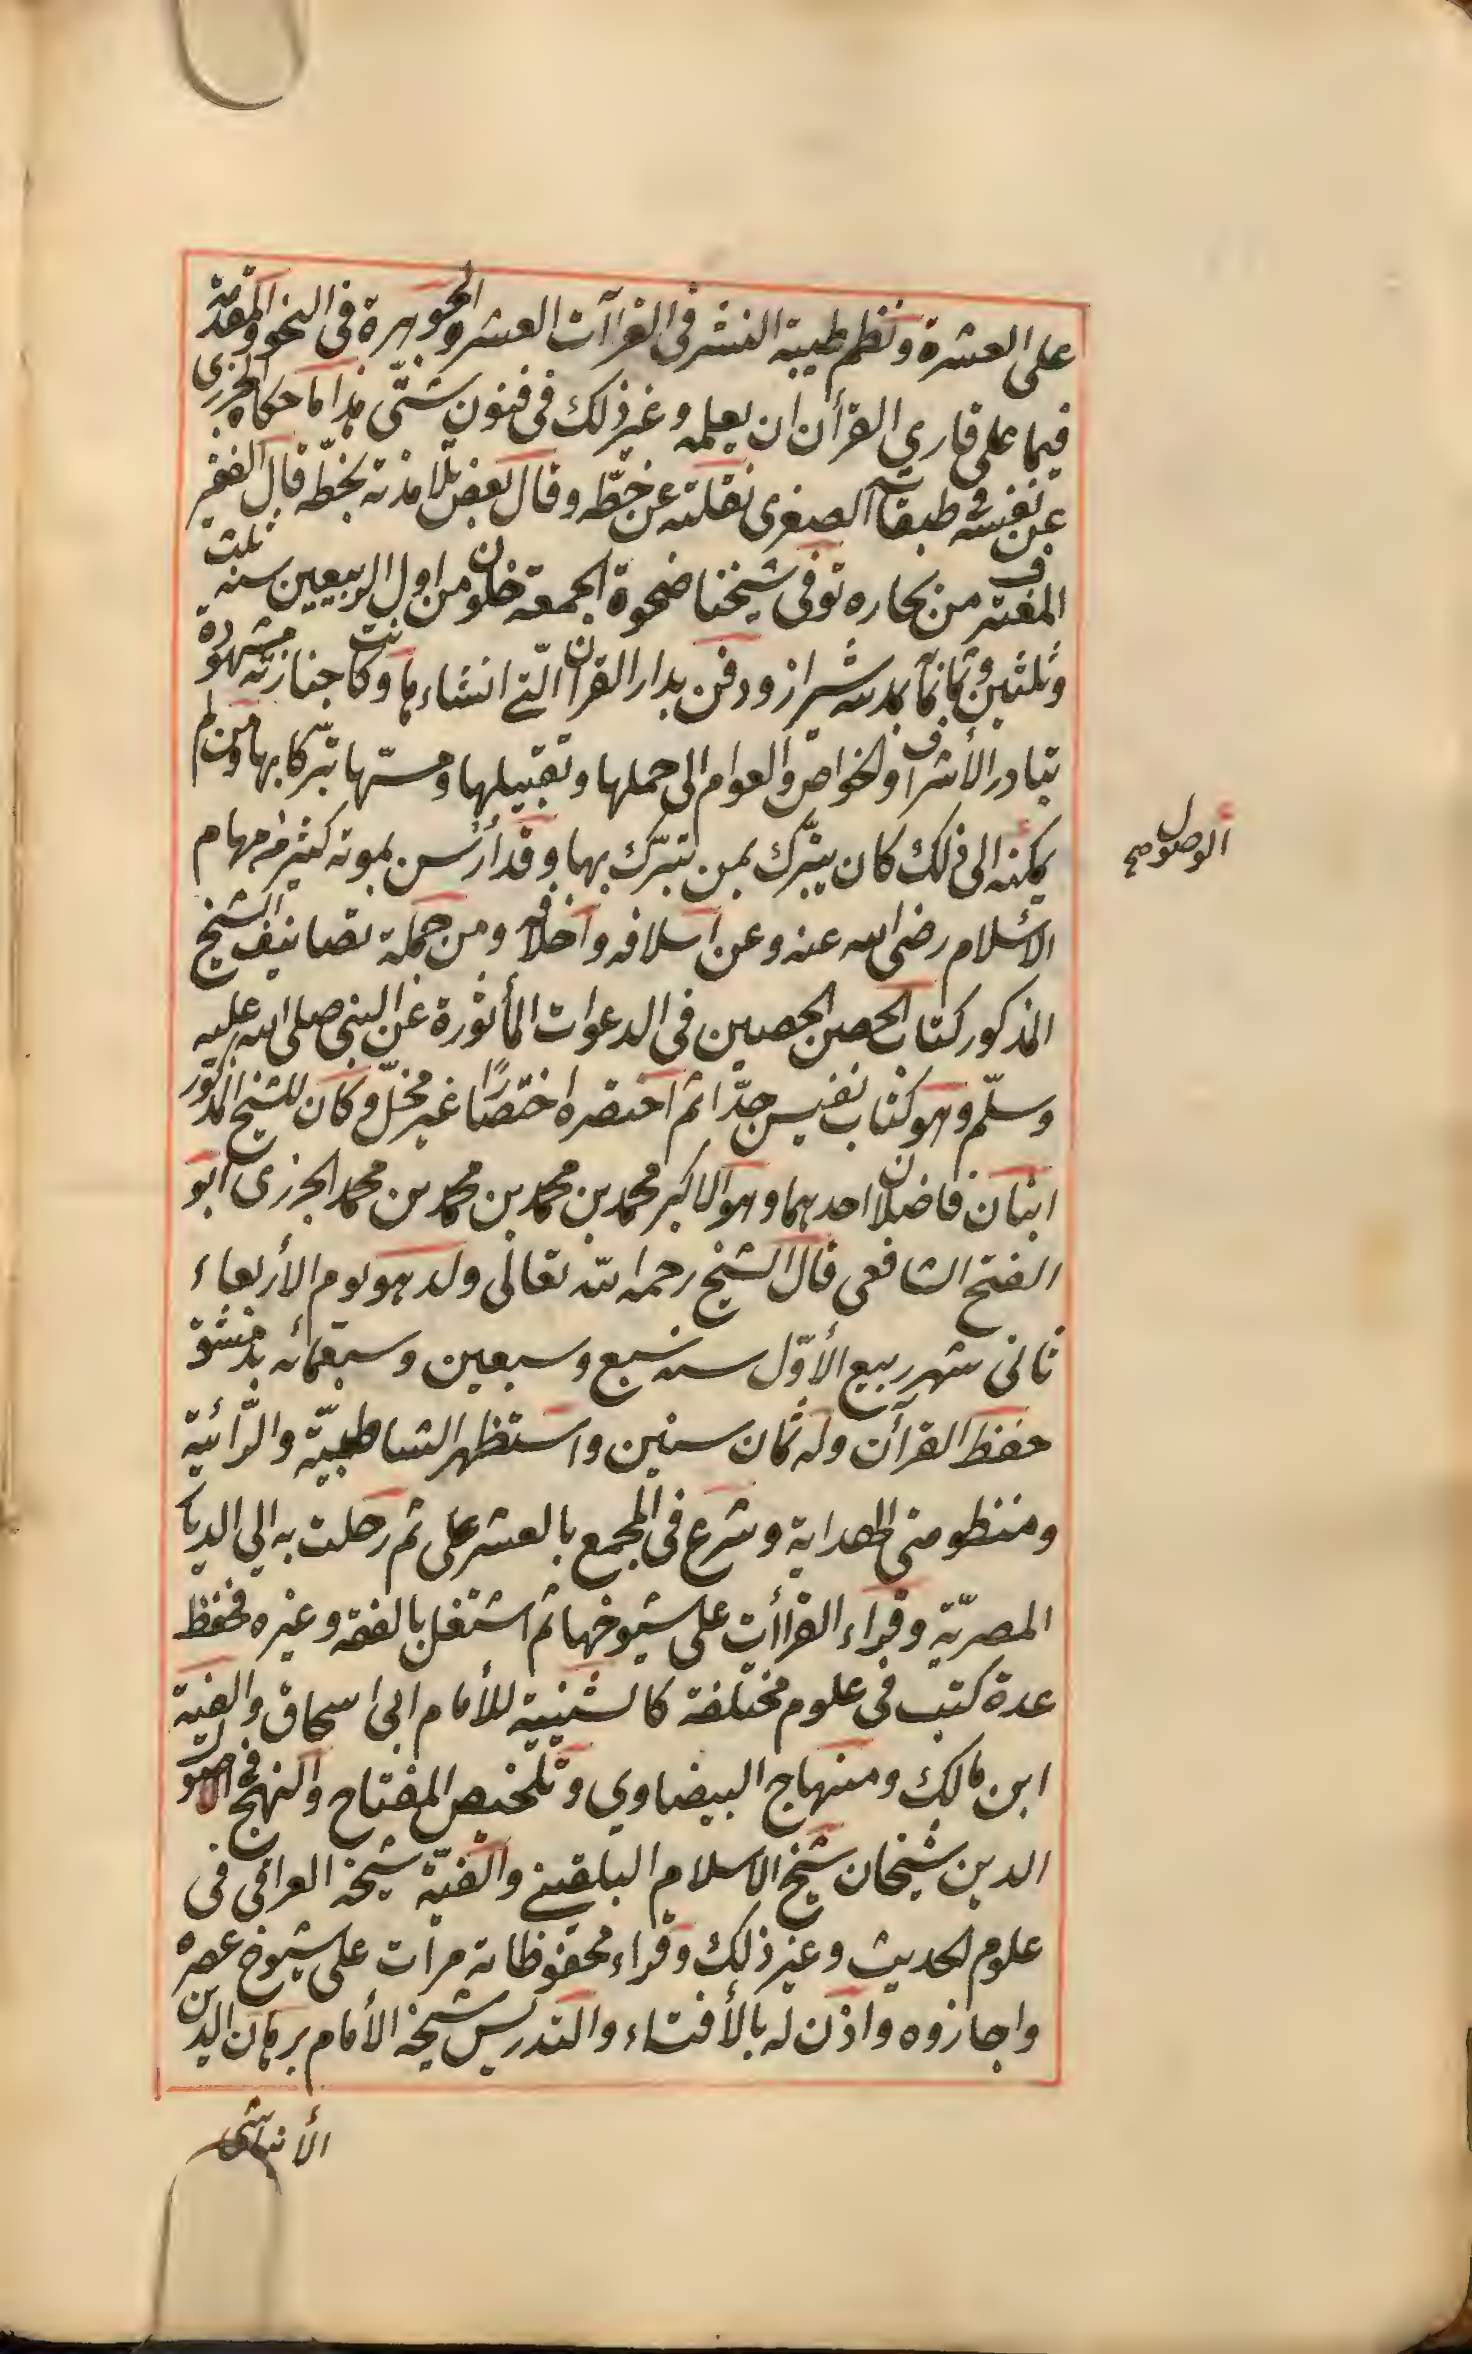 على العشرة ونظم طيبة النشر فى القراآت العشر والجوهرة فى النحو والمقدمة
فيما على قارى القرأن ان يعلمه وغير ذلك فى فنون شتّى هذا ما حكاه الجزرى
عن نفسه فى طبقاته الصغرى نقلته عن خطّه وقال بعض تلامذته بخطّه قال الفقير
المغترف من بحاره توفى شيخنا ضحوة الجمعة خلون من اول الربيعين سنه ثلث
وثلثين وثمانمائة بمدينة شيراز ودفن بدار القرآن الّتى انشاءها وكانت جنازته مشهودة
تبادر الأشراف والخواصّ والعوام الى حملها وتقبيلها ومسّها تبرّكا بها ومن لم
يمكنه الى ذلك كان يتبرّك بمن تبرّك بها وقد اندرس بموته كثير من مهام
الوصول صح
الاسلام رضى الله عنه وعن اسلافه واخلافه ومن جملة تصانيف الشيخ
المذكور كتاب الحصن الحصين فى الدعوات المأثورة عن النبى صلى الله عليه
وسلّم وهو كتاب نفيس جدّا ثم اختصره اختصارًا غير مخلّ وكان للشيخ المذكور
ابنان فاضلان احدهما وهو الاكبر محمد بن محمد بن محمد بن محمد الجزرى ابو
الفتح الشافعى قال الشيخ رحمه الله تعالى ولد هو يوم الأربعاء
ثانى شهر ربيع الأوّل سنه سبع وسبعين وسبعمائه بدمشق
حفظ القرآن وله ثمان سنين واستظهر الشاطبيّة والرّائية
ومنظومتى الهداية وشرع فى الجمع بالعشر على ثم رحلت به الى الديار
المصريّة وقراء القراأت على شيوخها ثم اشتغل بالفقه وغيره فحفظ
عدة كتب فى علوم مختلفة كالتنبيه للأمام ابى اسحاق والفية
ابن مالك ومنهاج البيضاوي وتلخيص المفتاح والنهج فى اصول
الدين شيخان شيخ الاسلام البلقينى والفيّة شيخه العراقى فى
علوم الحديث وغير ذلك وقراء محفوظاته مرات على شيوخ عصره
واجازوه واذن له بالأفتاء والتدريس شيخه الأمام برهان الدين
الأنباسى